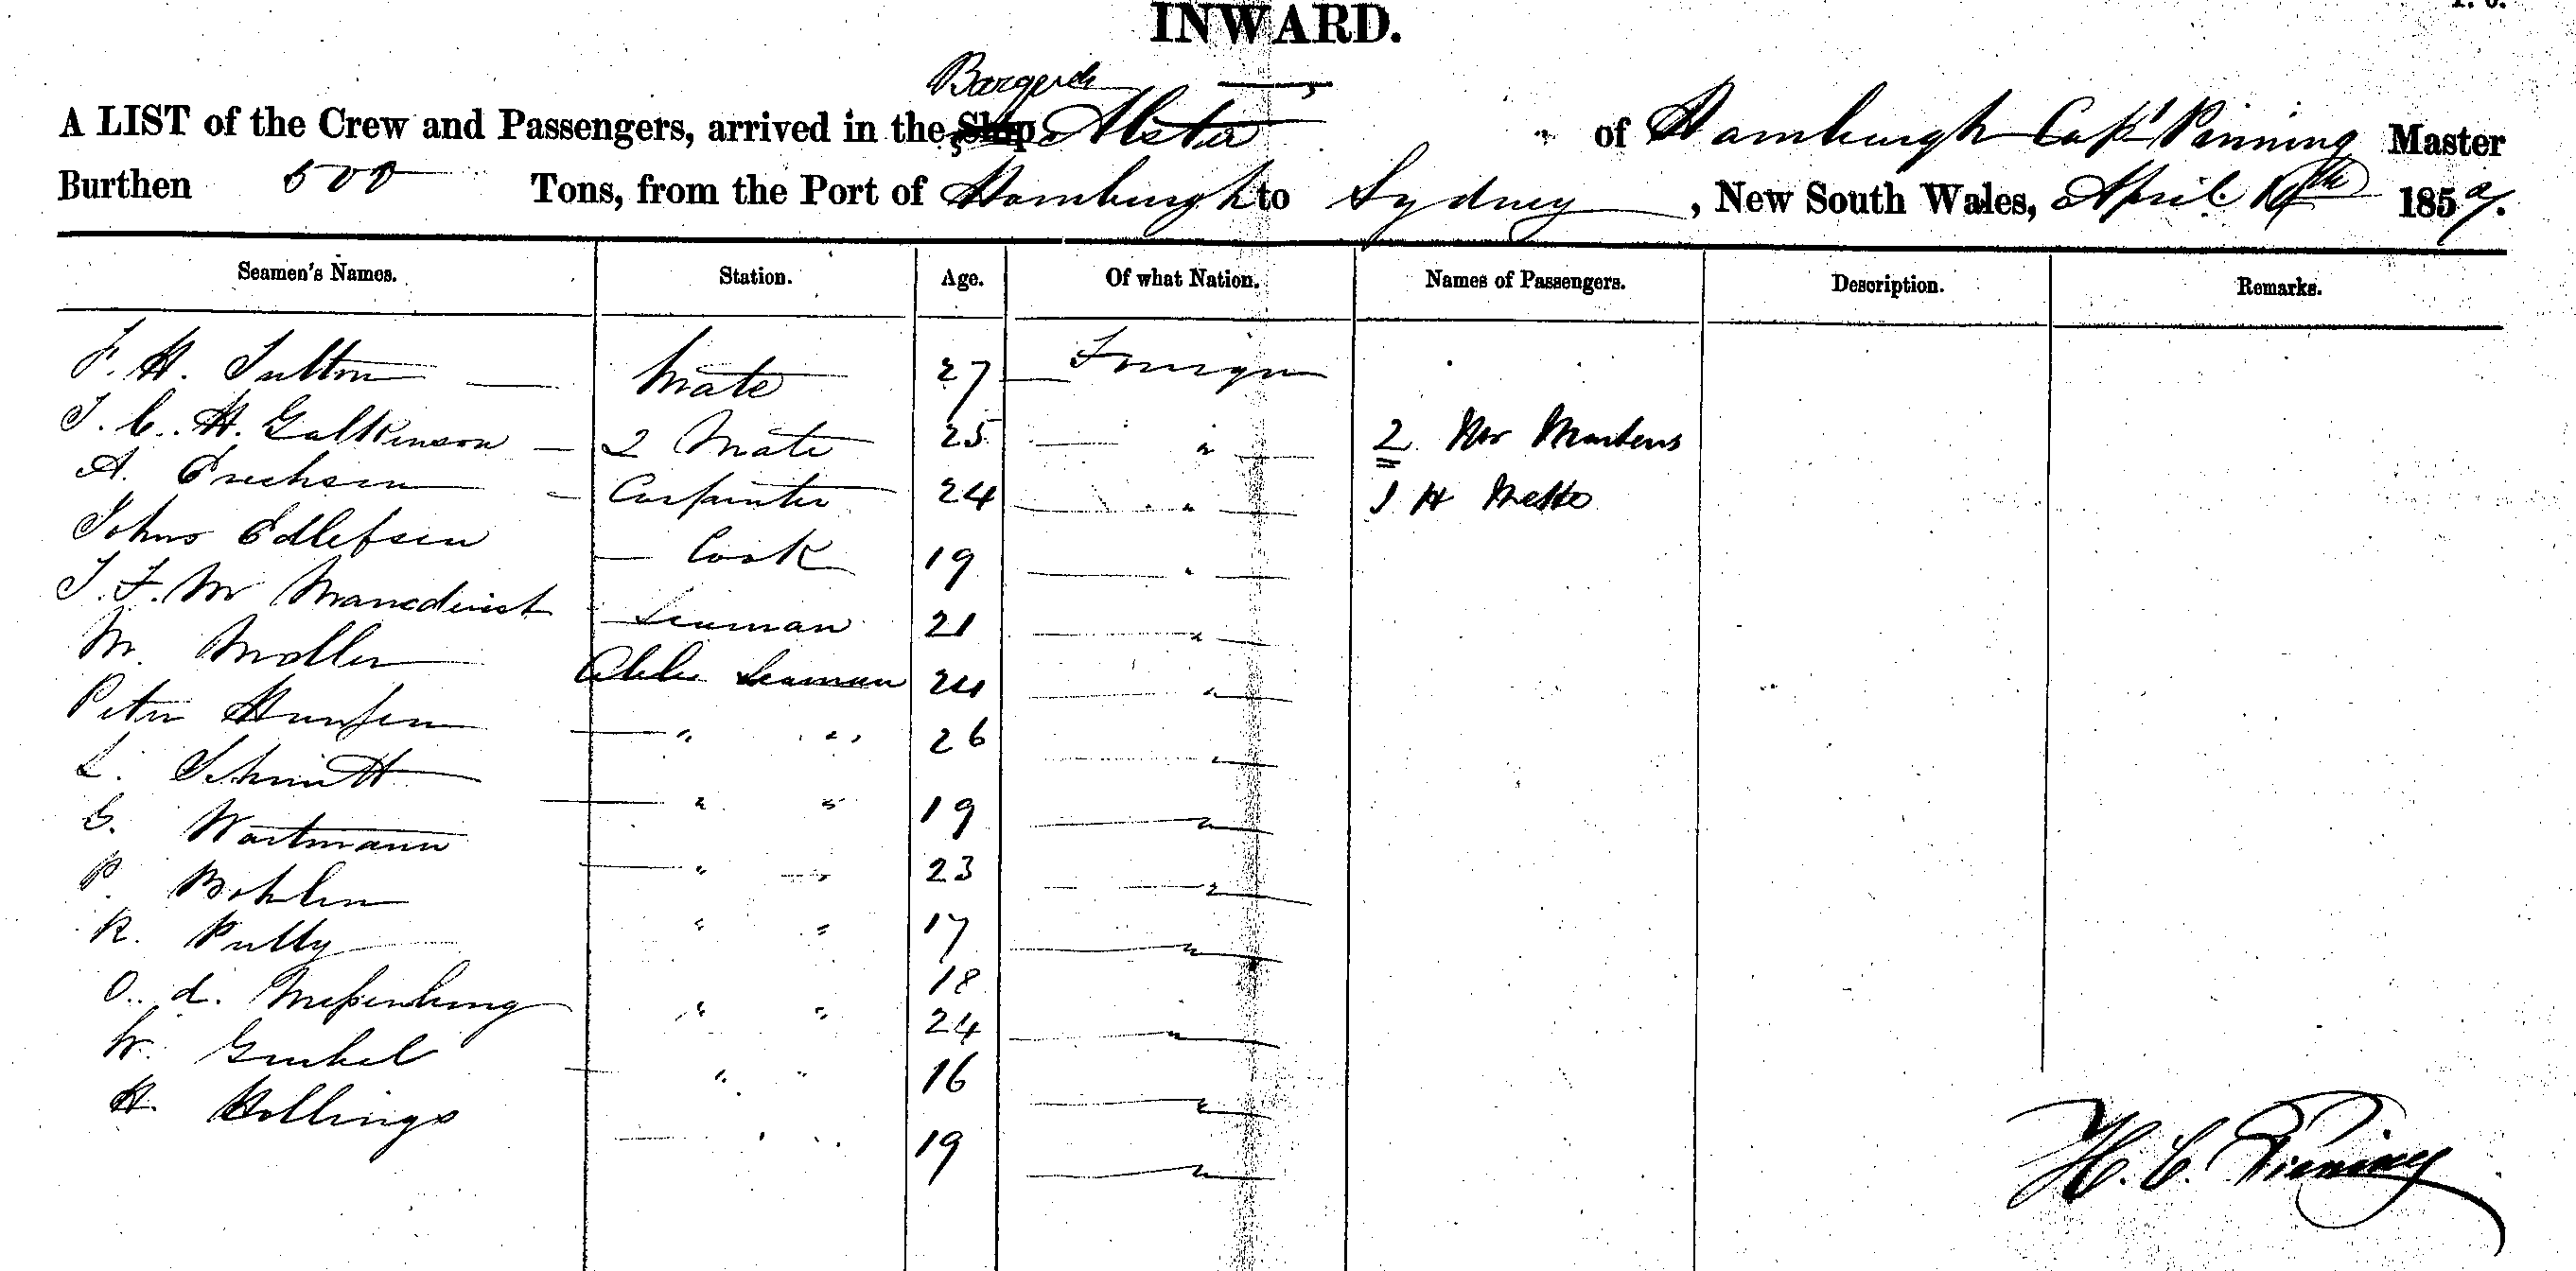 INWARD.
Barque
A LIST of the Crew and Passengers, arrived in the Ship Alster of Hamburgh Capt Pinning Master
Burthen 500 Tons, from the Port of Hamburgh to Sydney, New South Wales, April 1859.
Seamen's Names. Station. Age. Of what Nation. Names of Passengers. Description. Remarks.
F. H. Mate 27 Foreign
J. C. H. 2 Mate 25 " 2 Mr Martens
A. Erichsen Carpenter 24 " 1 H
Johns Edlefsen Cook 19 "
J. F. M Seaman 21 "
M. Moller Able Seaman 24 "
Peter Hansen " " 26 "
L. Schmitt " " 19 "
G. Wortmann " " 23 "
P. Bohlen " " 17 "
R. 18
O. d. " " 24 "
W. " " 16 "
H. Hollings " " 19 "
H. C. Pinning